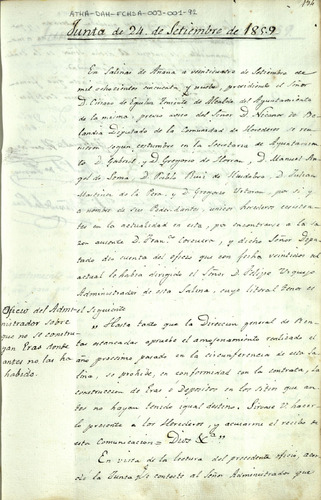 ATHA-DAH-FCHSA-003-001-92
194
Junta de 24 de Setiembre de 1859
En Salinas de Añana a veinticuatro de Setiembre de
mil ochocientos cincuenta y nueve, presididos el Señor
D. Ciriaco de Eguiluz Teniente de Alcalde del Ayuntamiento
de la misma, previo aviso del Señor D. Nicanor de
landia Diputado de la Comunidad de Herederos se reu
nieron segun costumbre en la Secretaria de Ayuntamien
to, D. Gabriel, y D. Gregorio de Horna, D. Manuel An
gel de Soma, D. Pablo Ruiz de Mendoza, D. Julian
Martinez de la Pera, y D. Gregorio por sí y
a nombre de sus Poderdantes, unicos herederos existen
tes en la actualidad en esta, por encontrarse a la sa
zon ausente D. Fran.co Corcuera, y dicho Señor Dipu
tado dio cuenta del oficio que con fecha veintidos al
actual le habia dirigido el Señor D. Felipe Urquijo
Administrador de esta Salina, cuyo literal tenor es
el siguiente
Oficio del Admi
nistrador sobre
que no se constru
yan Eras donde
antes no las ha
habido.
"Hasta tanto que la Direccion general de Ren
tas estancadas apruebe el amojonamiento realizado el
año procsimo pasado en la circunferencia de esta Sa
lina, se prohibe, en conformidad con la contrata, la
construccion de Eras o Depositos en los sitios que an
tes no hayan tenido igual destino. Sirvase V. hacer
lo presente a los Herederos, y acusarme el recibo de
esta comunicacion = Dios &a"
En vista de la lectura del precedente oficio, acor
dó la Junta se conteste al Señor Administrador que